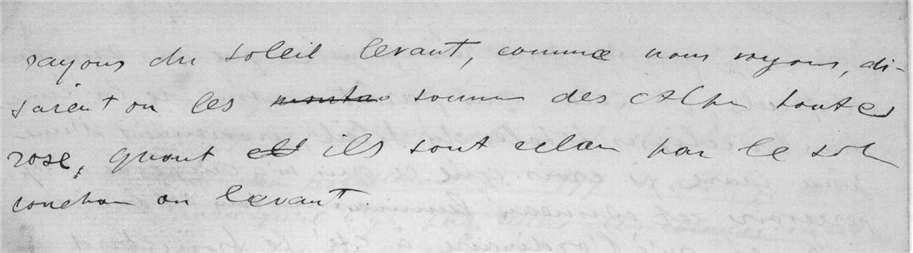 rayons du soleil levant, comme nous voyons, di-
saient on les sommes des Alpes toutes
rose, quant ils sont eclai par le sol
couchan ou levant.